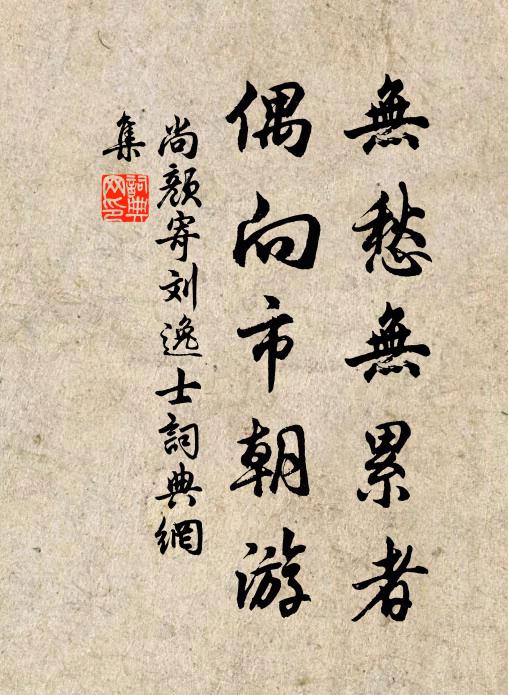 無愁無累者
偶向市朝游
尚顏寄刘逸士詞典網
集
詞典
网印